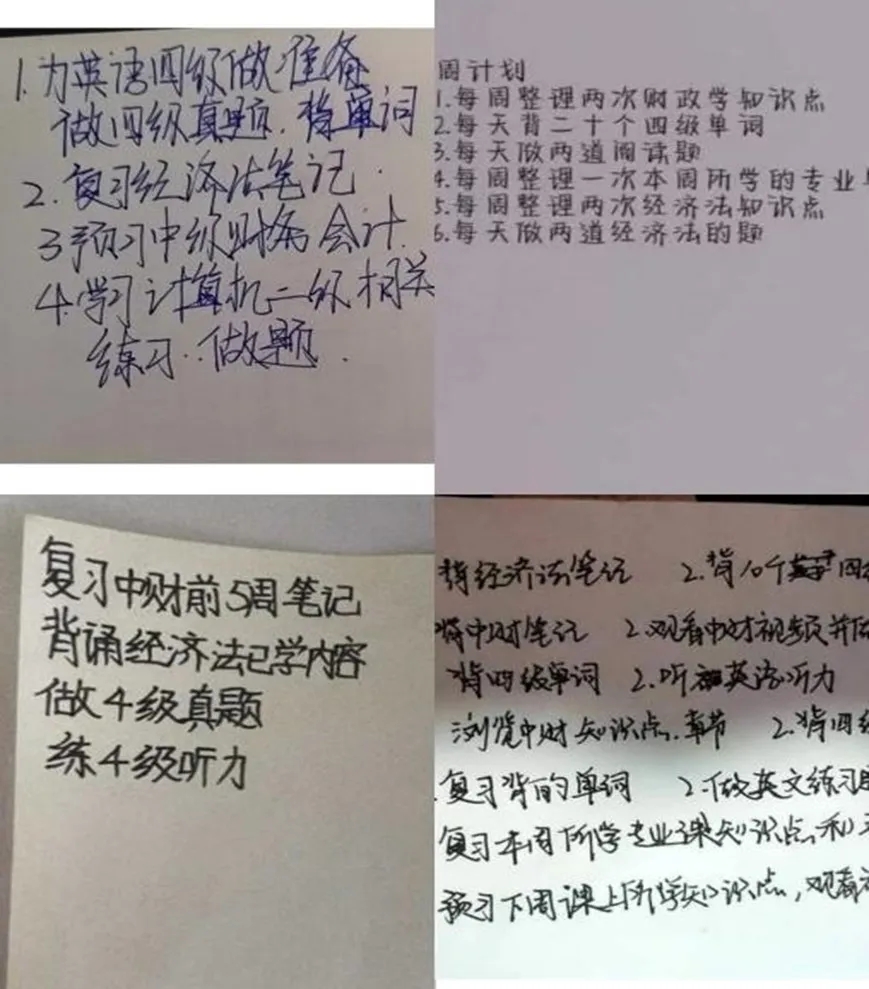 1.为英语四级做准备
做四级真题.背单词
2.复习经济法笔记.
3预习中级财务会计.
4.学习计算机二级相关
练习.做题.
周计划
1.每周整理两次财政学知识点
2.每天背二十个四级单词
3.每天做两道阅读题
4.每周整理一次本周所学的专业
5.每周整理两次经济法知识点
6.每天做两道经济法的题
复习中财前5周笔记
背诵经济法已学内容
做4级真题
练4级听力
背经济法笔记 2.背10个
背中财笔记 2.观看中财视频并做
背四级单词 2.听英语听力
浏览中财知识点.章节 2.背四级
复习背的单词 2.做英文练习
复习本周所学专业课知识点,和
预习下周课上所学知识点,观看